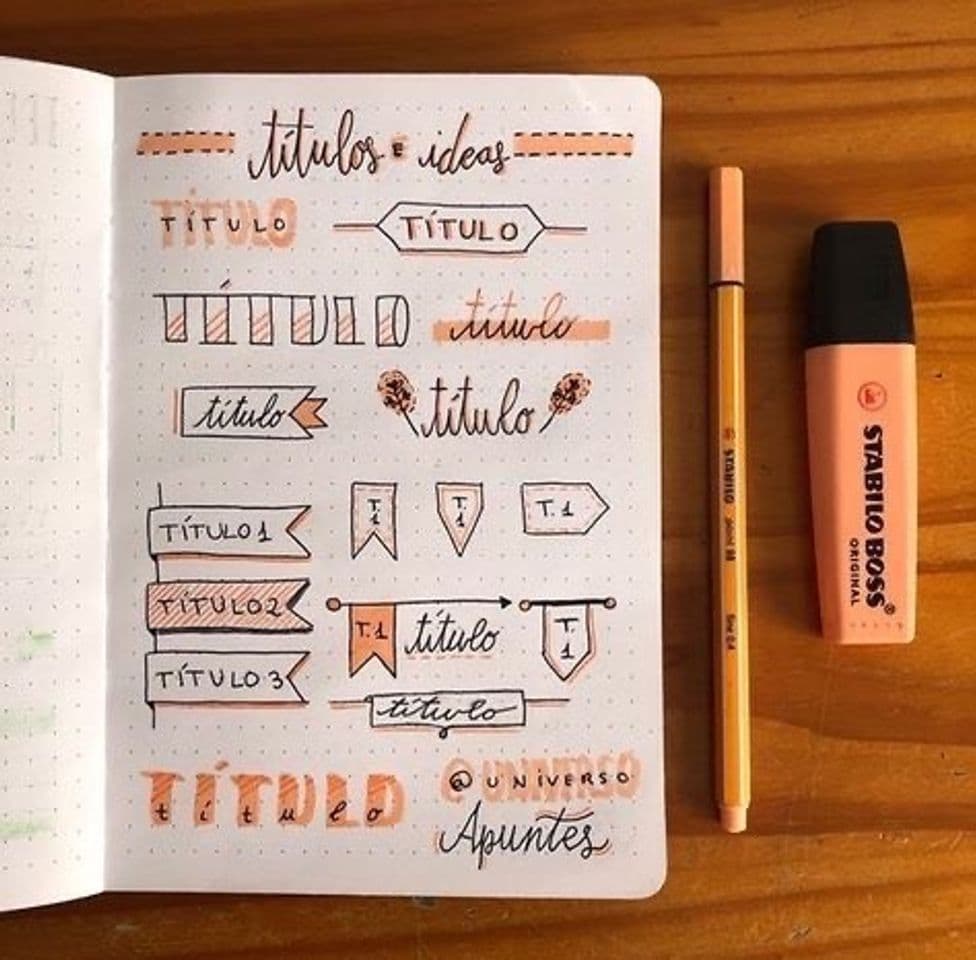 títulos E ideas
TÍTULO TÍTULO
TÍTULO título
título título
TÍTULO 1 T.1 T.1 T.1
TÍTULO 2 T.1 título T.1
TÍTULO 3 título
TÍTULO título
@UNIVERSO
Apuntes
STABILO point 88 fine 0.4
STABILO BOSS®
ORIGINAL